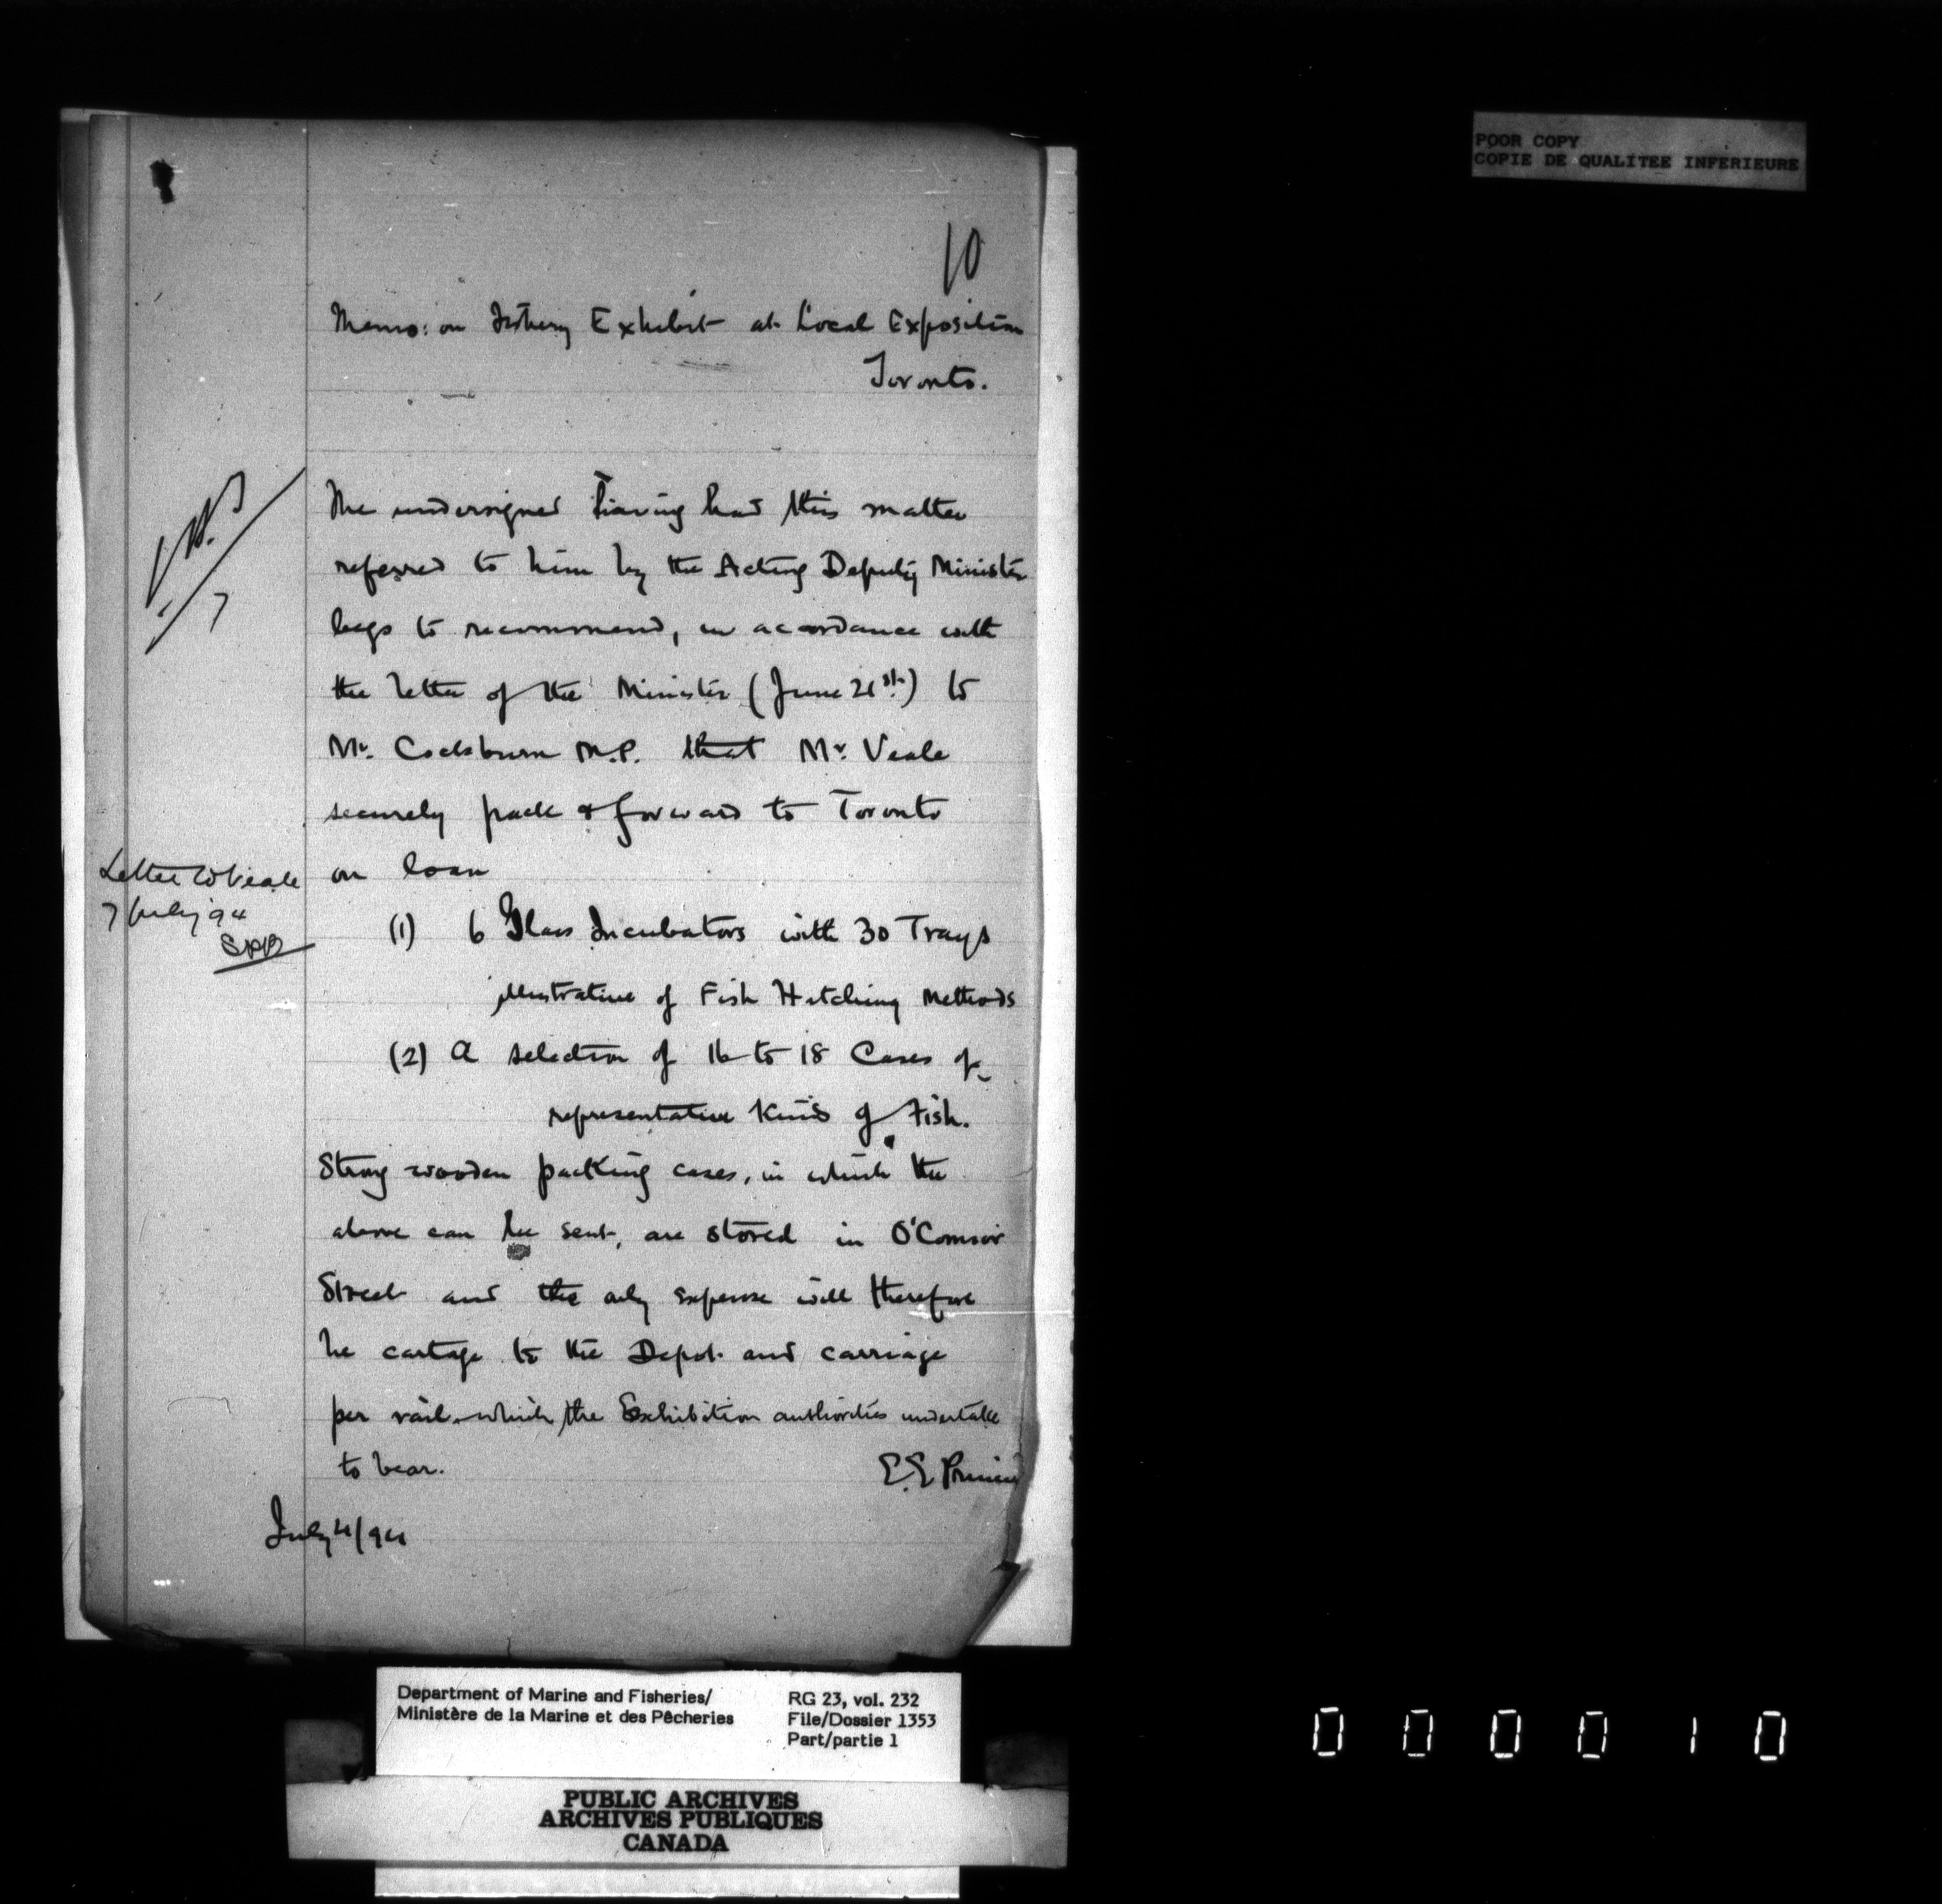 POOR COPY
COPIE DE QUALITEE INFERIEURE
10
Memo: on Fishery Exhibit at Local Exposition
Toronto.
The undersigned having had this matter
referred to him by the Acting Deputy Minister
begs to recommend, in accordance with
the letter of the Minister (June 21st) to
Mr. Cockburn M.P. that Mr. Veale
securely pack & forward to Toronto
on loan
Letter to Veale
7 July '94
(1) 6 Glass Incubators with 30 Trays
illustrative of Fish Hatching Methods
(2) A selection of 16 to 18 Cases of
representative kinds of Fish.
Strong wooden packing cases, in which the
above can be sent, are stored in O'Connor
Street and the only expense will therefore
be cartage to the Depot and carriage
per rail which the Exhibition authorities undertake
to bear.
E.E. Prince
July 4/94
Department of Marine and Fisheries/
Ministère de la Marine et des Pêcheries
RG 23, vol. 232
File/Dossier 1353
Part/partie 1
PUBLIC ARCHIVES
ARCHIVES PUBLIQUES
CANADA
000010